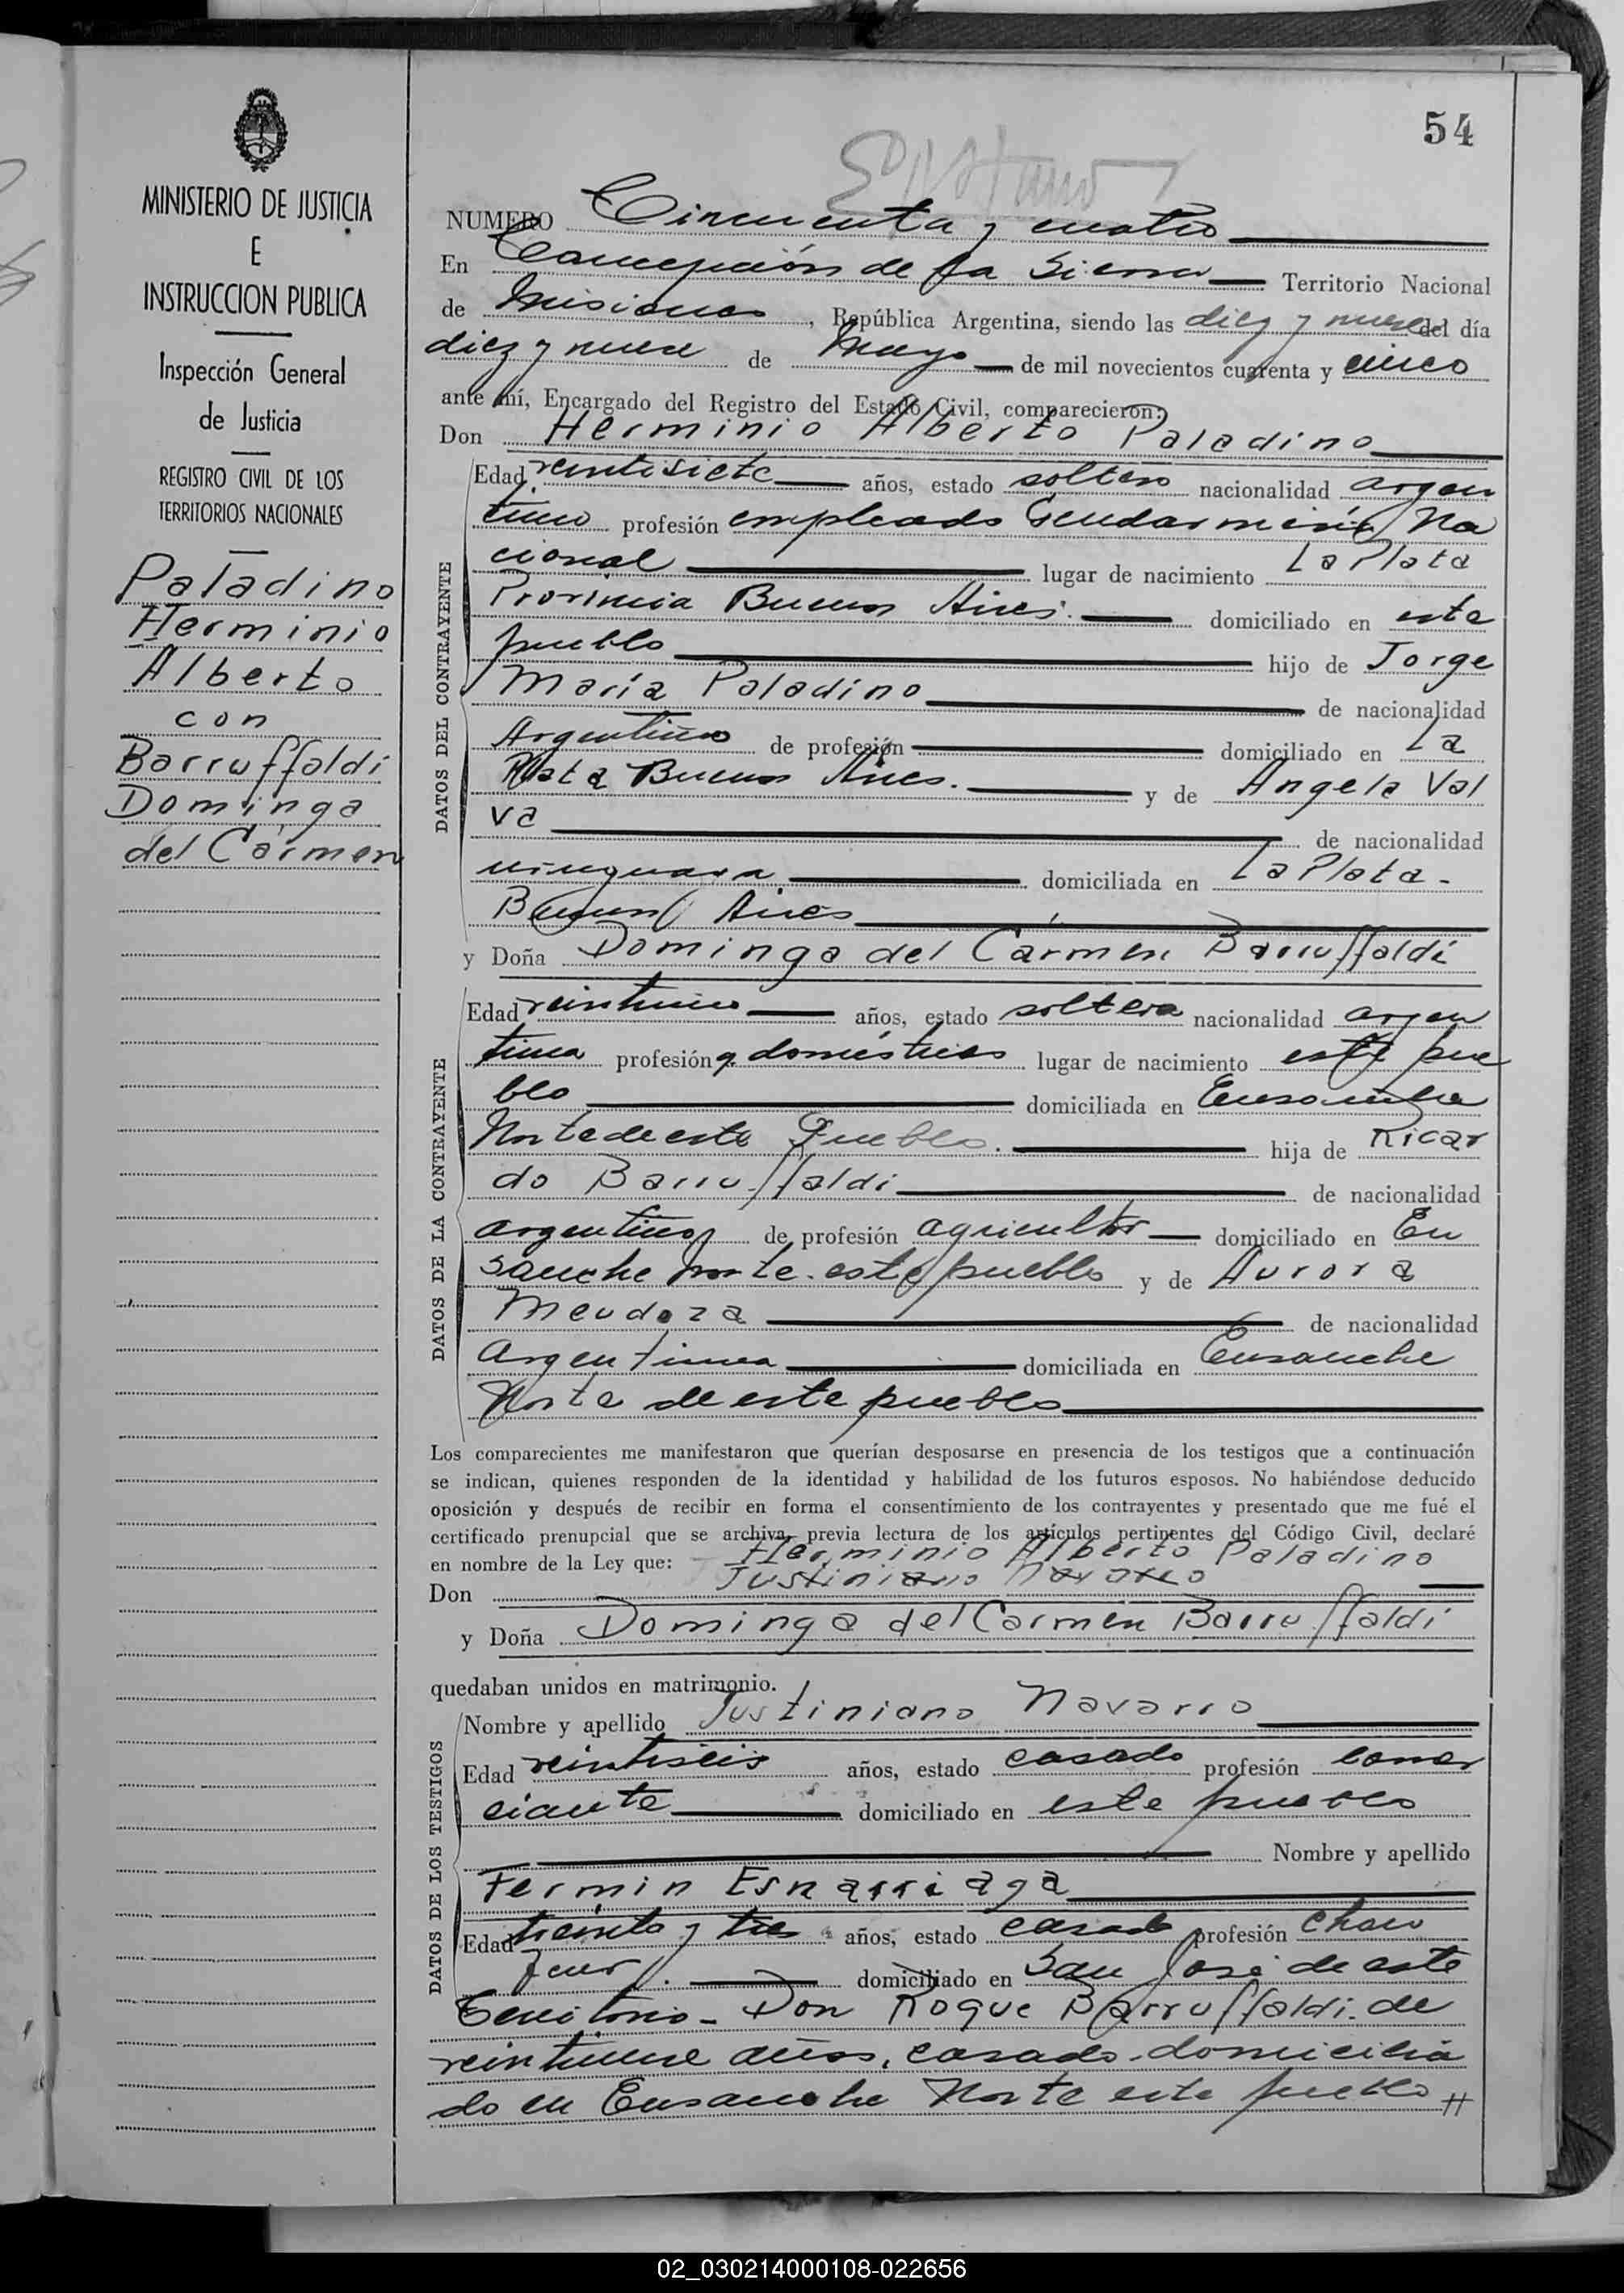 54
MINISTERIO DE JUSTICIA
E
INSTRUCCION PUBLICA
Inspección General
de Justicia
REGISTRO CIVIL DE LOS
TERRITORIOS NACIONALES
Paladino
Herminio
Alberto
con
Barruffaldi
Dominga
del Cármen
NUMERO Cincuenta y cuatro
En Concepción de la Sierra Territorio Nacional
de Misiones, República Argentina, siendo las diez y nueve del día
diez y nueve de Mayo de mil novecientos cuarenta y cinco
ante mí, Encargado del Registro del Estado Civil, comparecieron:
Don Herminio Alberto Paladino
DATOS DEL CONTRAYENTE
Edad veintisiete años, estado soltero nacionalidad argen
tino profesión empleado Gendarmería Na
cional lugar de nacimiento La Plata
Provincia Buenos Aires. domiciliado en este
pueblo hijo de Jorge
María Paladino de nacionalidad
Argentino de profesión domiciliado en La
Plata Buenos Aires. y de Angela Val
va de nacionalidad
domiciliada en La Plata-
Buenos Aires
y Doña Dominga del Cármen Barruffaldi
DATOS DE LA CONTRAYENTE
Edad años, estado soltera nacionalidad argen
tina profesión q. domésticos lugar de nacimiento este pue
blo domiciliada en Ensanche
Norte de este Pueblo. hija de Ricar
do Barruffaldi de nacionalidad
argentino de profesión agricultor domiciliado en En
sanche Norte este pueblo y de Aurora
Mendoza de nacionalidad
Argentina domiciliada en Ensanche
Norte de este pueblo
Los comparecientes me manifestaron que querían desposarse en presencia de los testigos que a continuación
se indican, quienes responden de la identidad y habilidad de los futuros esposos. No habiéndose deducido
oposición y después de recibir en forma el consentimiento de los contrayentes y presentado que me fué el
certificado prenupcial que se archiva, previa lectura de los artículos pertinentes del Código Civil, declaré
en nombre de la Ley que: Herminio Alberto Paladino
Don Justiniano Navarro
y Doña Dominga del Carmen Barruffaldi
quedaban unidos en matrimonio.
DATOS DE LOS TESTIGOS
Nombre y apellido Justiniano Navarro
Edad veintiseis años, estado casado profesión comer
ciante domiciliado en este pueblo
Nombre y apellido
Fermin Esnarriaga
Edad treinta y tres años, estado casado profesión chau
feur. domiciliado en San José de este
Territorio- Don Roque Barruffaldi. de
veintinueve años, casado. domicilia
do en Ensanche Norte este pueblo //
02_030214000108-022656